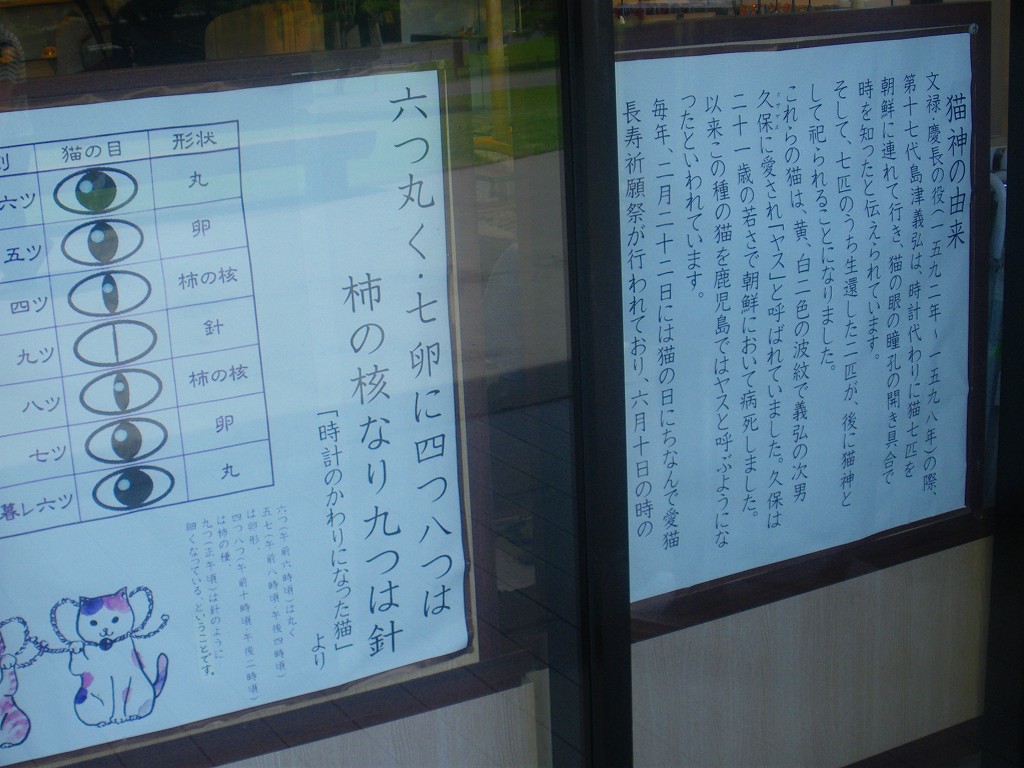 猫神の由来
文禄・慶長の役(一五九二年～一五九八年)の際、
第十七代島津義弘は、時計代わりに猫七匹を
朝鮮に連れて行き、猫の眼の瞳孔の開き具合で
時を知ったと伝えられています。
そして、七匹のうち生還した二匹が、後に猫神と
して祀られることになりました。
これらの猫は、黄、白二色の波紋で義弘の次男
久保に愛され「ヤス」と呼ばれていました。久保は
ヒサヤス
二十一歳の若さで朝鮮において病死しました。
以来この種の猫を鹿児島ではヤスと呼ぶようにな
つたといわれています。
毎年、二月二十二日には猫の日にちなんで愛猫
長寿祈願祭が行われており、六月十日の時の
六つ丸く・七卵に四つ八つは
柿の核なり九つは針
「時計のかわりになった猫」より
別 猫の目 形状
六ツ 丸
五ツ 卵
四ツ 柿の核
九ツ 針
八ツ 柿の核
七ツ 卵
暮レ六ツ 丸
六つ(午前六時頃)は丸く
五七(午前八時頃・午後四時頃)
は卵形、
四つ八つ(午前十時頃・午後二時頃)
は柿の種
九つ(正午頃)は針のように
細くなっている、ということです。